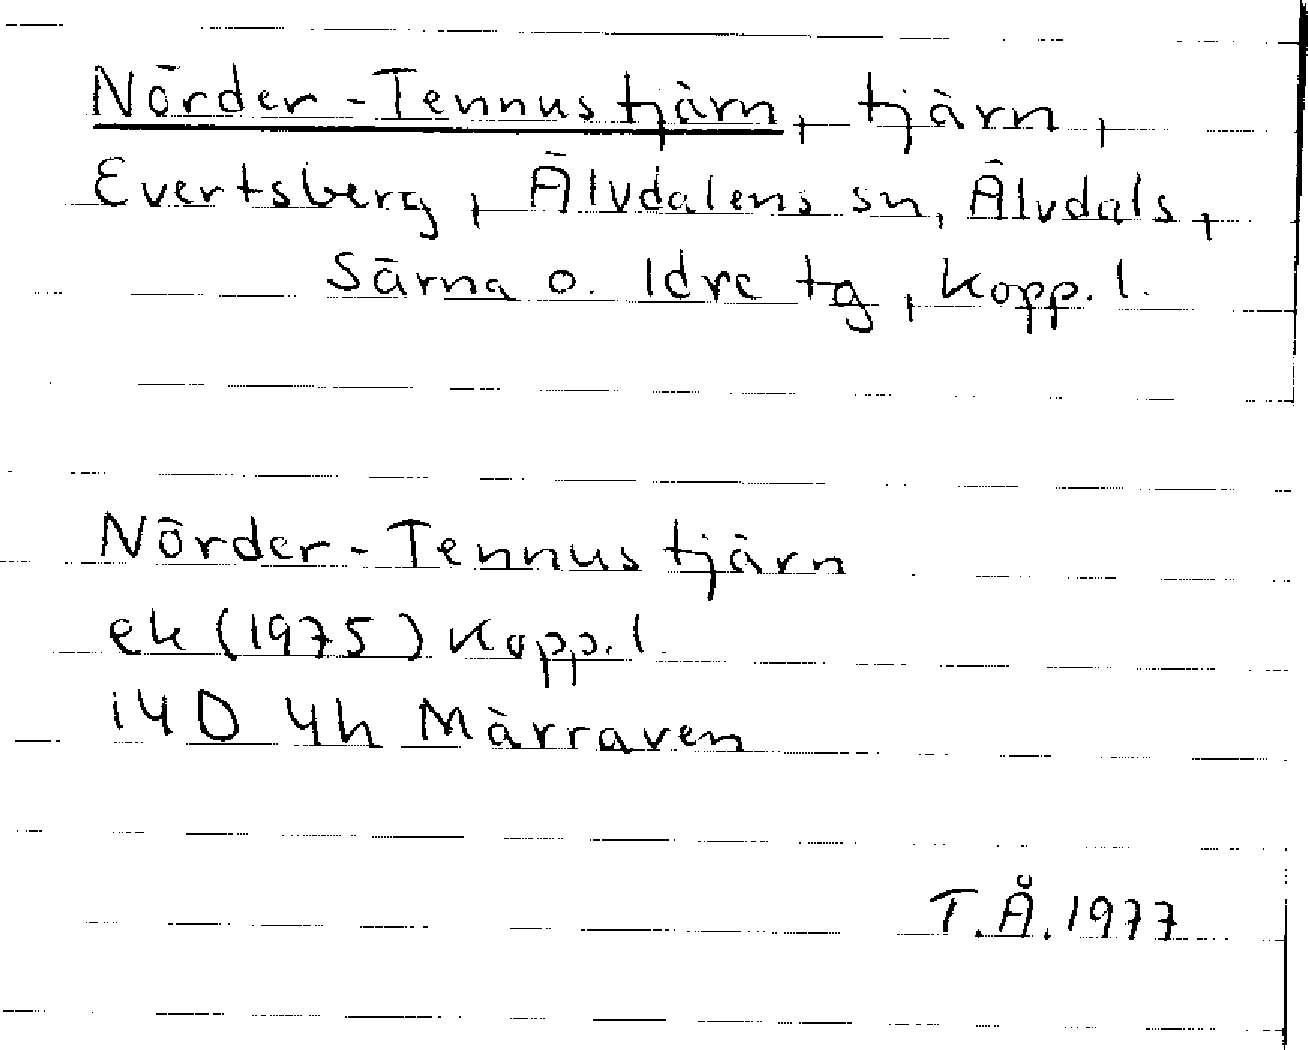 Nörder-Tennustjärn, tjärn,
Evertsberg, Älvdalens sn, Älvdals,
Särna o. Idre tg, Kopp. l.
Nörder-Tennustjärn
ek (1975) Kopp. l
14D 4h Märraven
T.Å. 1977